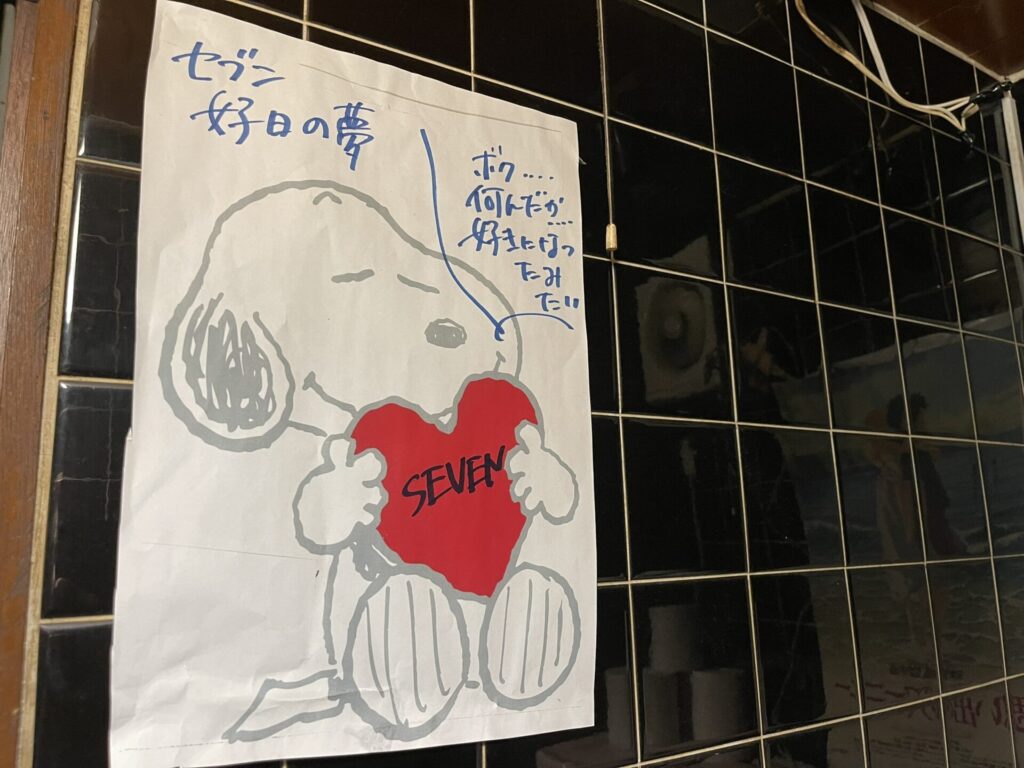 セブン
好日の夢
ボク....
何んだか....
好きになっ
たみ
たい
SEVEN